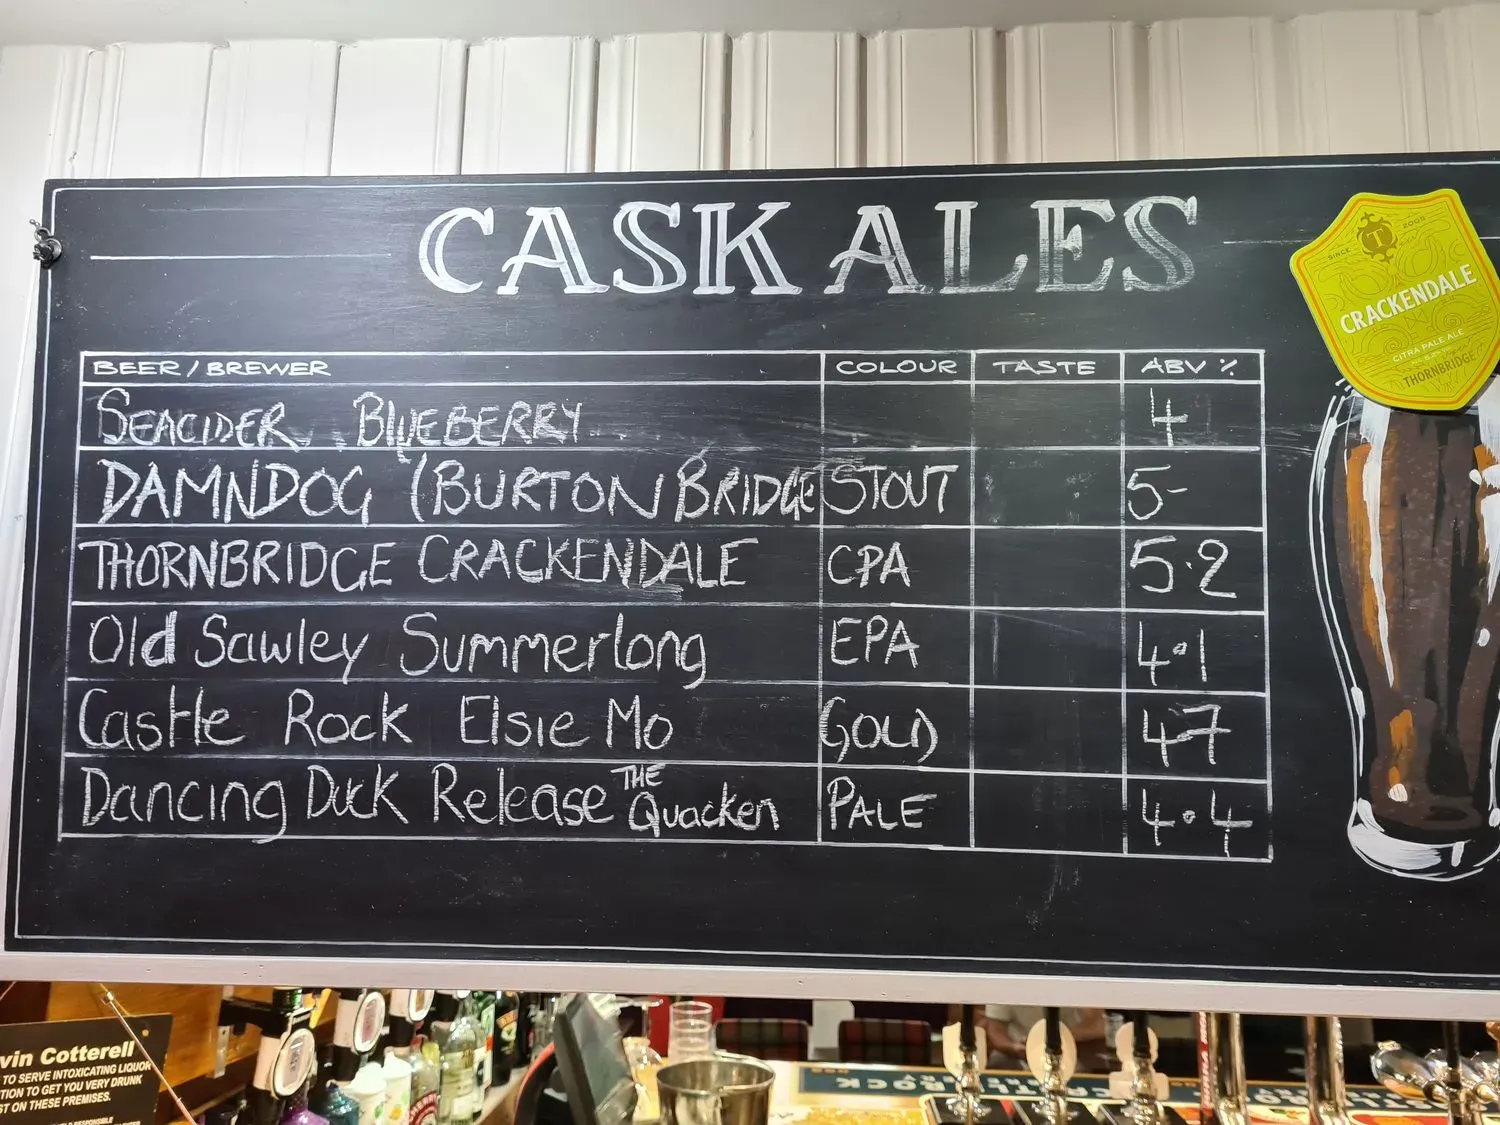 CASK ALES
BEER / BREWER COLOUR TASTE ABV %
SEACIDER BLUEBERRY 4
DAMNDOG (BURTON BRIDGE STOUT 5-
THORNBRIDGE CRACKENDALE CPA 5.2
Old Sawley Summerlong EPA 4.1
Castle Rock Elsie Mo GOLD 4.7
Dancing Duck Release THE Quacken PALE 4.4
SINCE T 2005
CRACKENDALE
CITRA PALE ALE
THORNBRIDGE
vin Cotterell
TO SERVE INTOXICATING LIQUOR
TION TO GET YOU VERY DRUNK
ST ON THESE PREMISES.
RESPONSIBLE